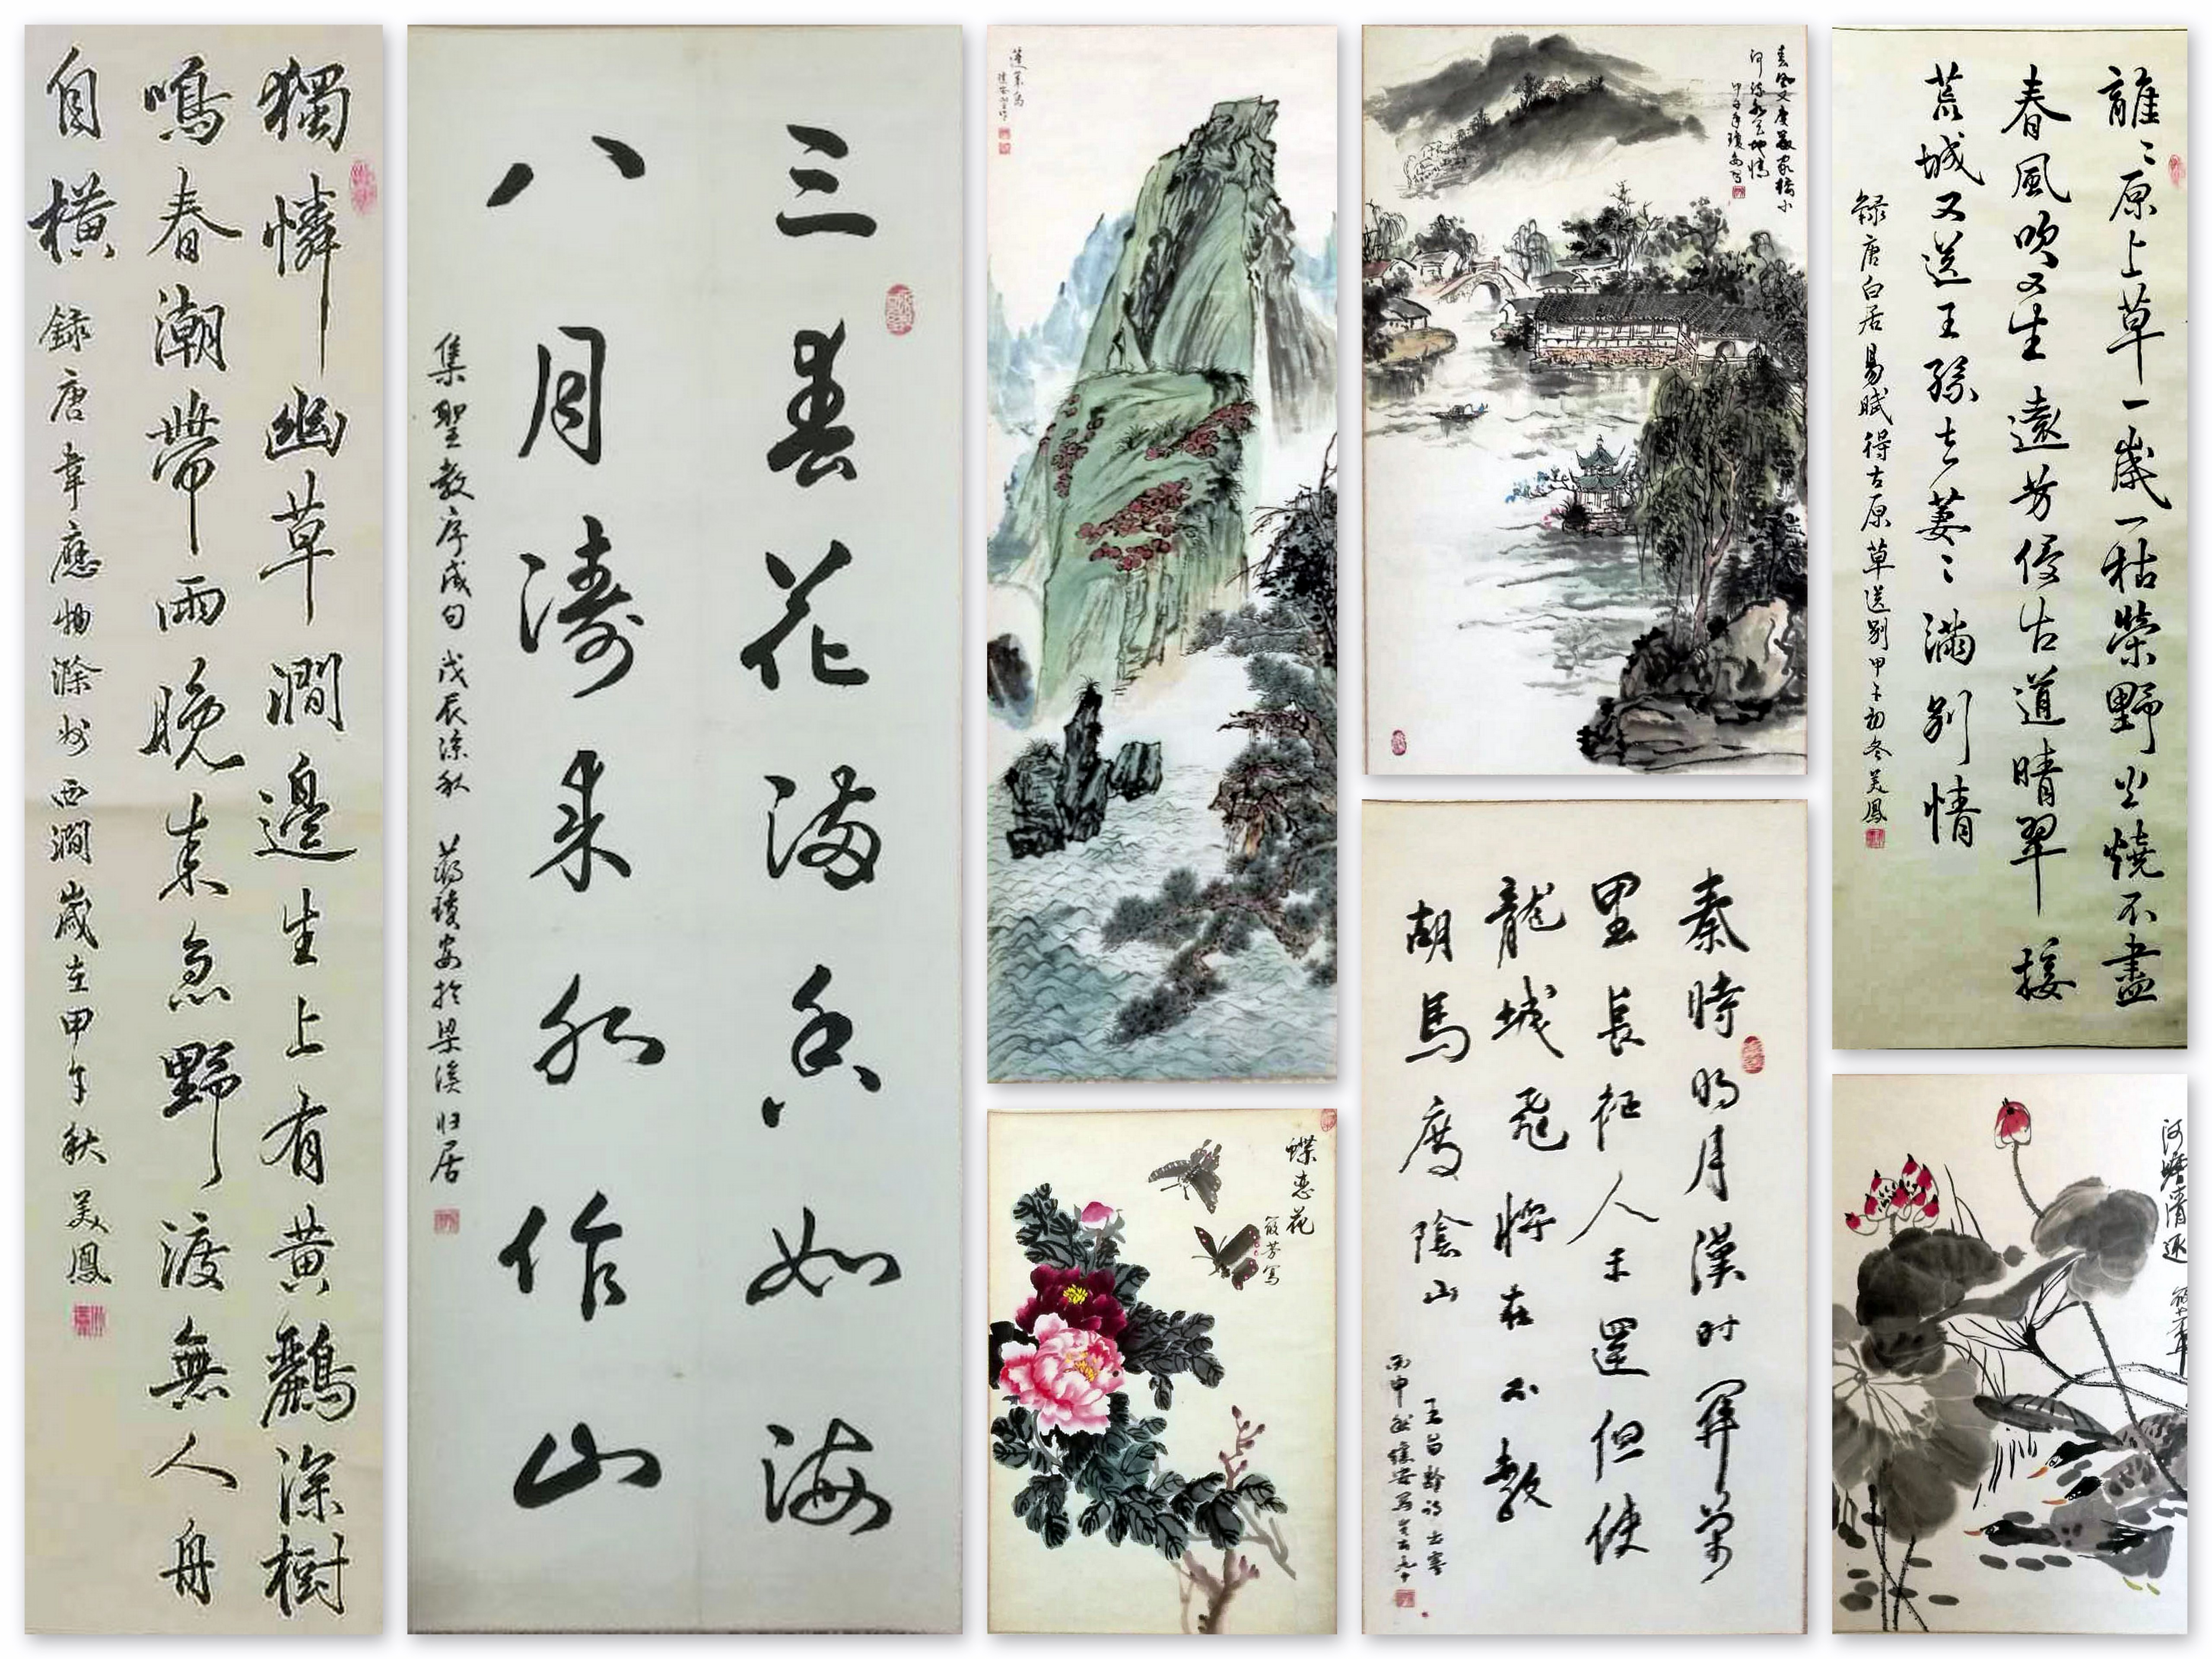 獨憐幽草澗邊生上有黃鸝深樹
鳴春潮帶雨晚來急野渡無人舟
自橫
錄唐韋應物滁州西澗歲在甲午秋美鳳
三春花滿香如海
八月濤来水作山
集聖教序成句 戊辰涼秋 蔣瓊安於梁溪归居
蓬萊島
春風又度農家橋小
甲午年瓊安写
離〻原上草一歲一枯榮野火燒不盡
春風吹又生遠芳侵古道晴翠接
荒城又送王孫去萋〻滿別情
錄唐白居易賦得古原草送別甲午初冬美鳳
蝶恋花
筱芳写
秦時明月漢时関萬
里長征人未還但使
龍城飛將在不教
胡馬度陰山
王昌齡詩出塞
丙申秋瓊安寫
河塘清趣